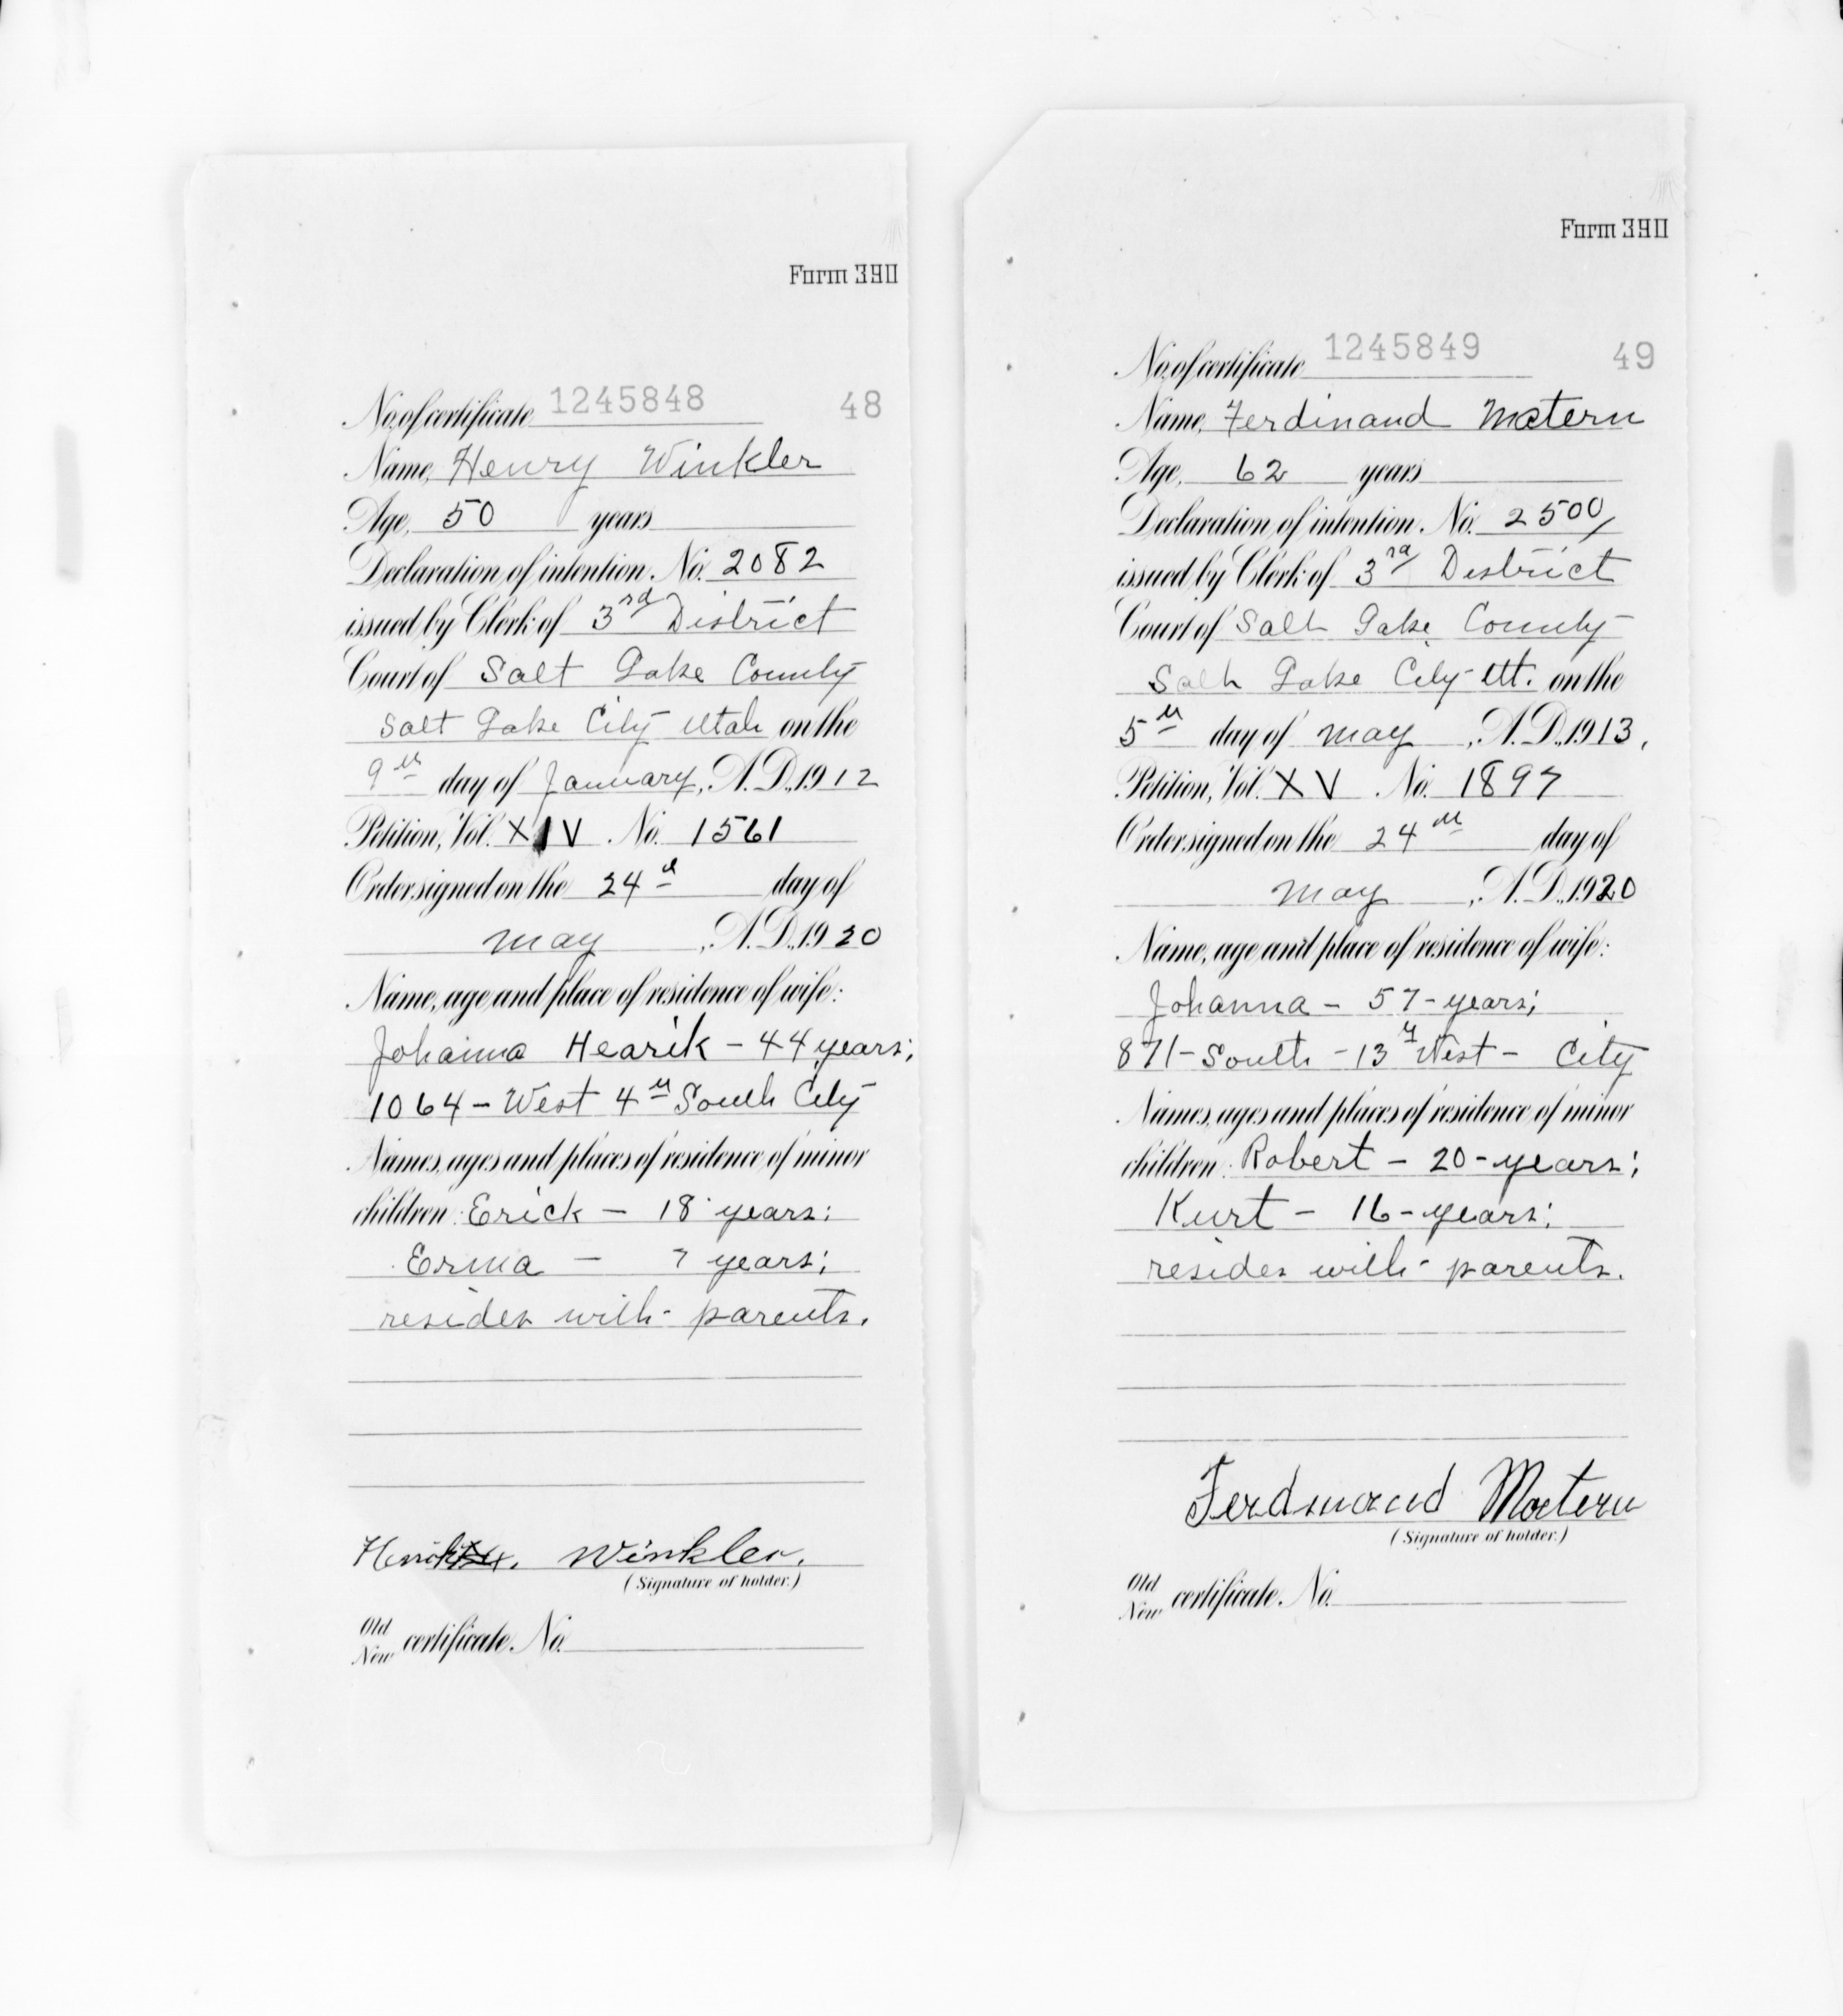 Form 390
No. of certificate 1245848 48
Name, Henry Winkler
Age, 50 years
Declaration of intention. No. 2082
issued by Clerk of 3rd District
Court of Salt Lake County
Salt Lake City Utah on the
9th day of January, A.D. 1912
Petition, Vol. XIV No. 1561
Order signed on the 24th day of
May, A.D. 1920
Name, age and place of residence of wife:
Johanna Hearik - 44 years;
1064 - West 4th South City
Names, ages and places of residence of minor
children: Erick - 18 years;
Erma - 7 years;
resides with parents.
Winkler.
(Signature of holder.)
Old
New certificate. No.
Form 390
No. of certificate 1245849 49
Name, Ferdinand Matern
Age, 62 years
Declaration of intention. No. 2500
issued by Clerk of 3rd District
Court of Salt Lake County
Salt Lake City Ut. on the
5th day of May, A.D. 1913,
Petition, Vol. XV No. 1897
Order signed on the 24th day of
May, A.D. 1920
Name, age and place of residence of wife:
Johanna - 57 - years;
871 - South - 13th West - City
Names, ages and places of residence of minor
children: Robert - 20 - years;
Kurt - 16 - years;
resides with parents.
Ferdinand Matern
(Signature of holder.)
Old
New certificate. No.